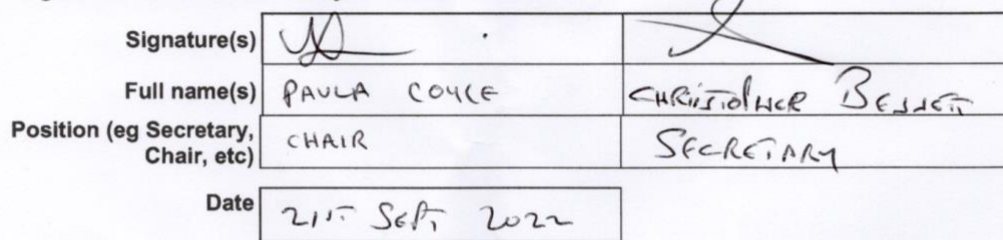 Signature(s)
Full name(s) PAULA COYLE CHRISTOPHER BENNETT
Position (eg Secretary, CHAIR SECRETARY
Chair, etc)
Date 21ST SEPT 2022